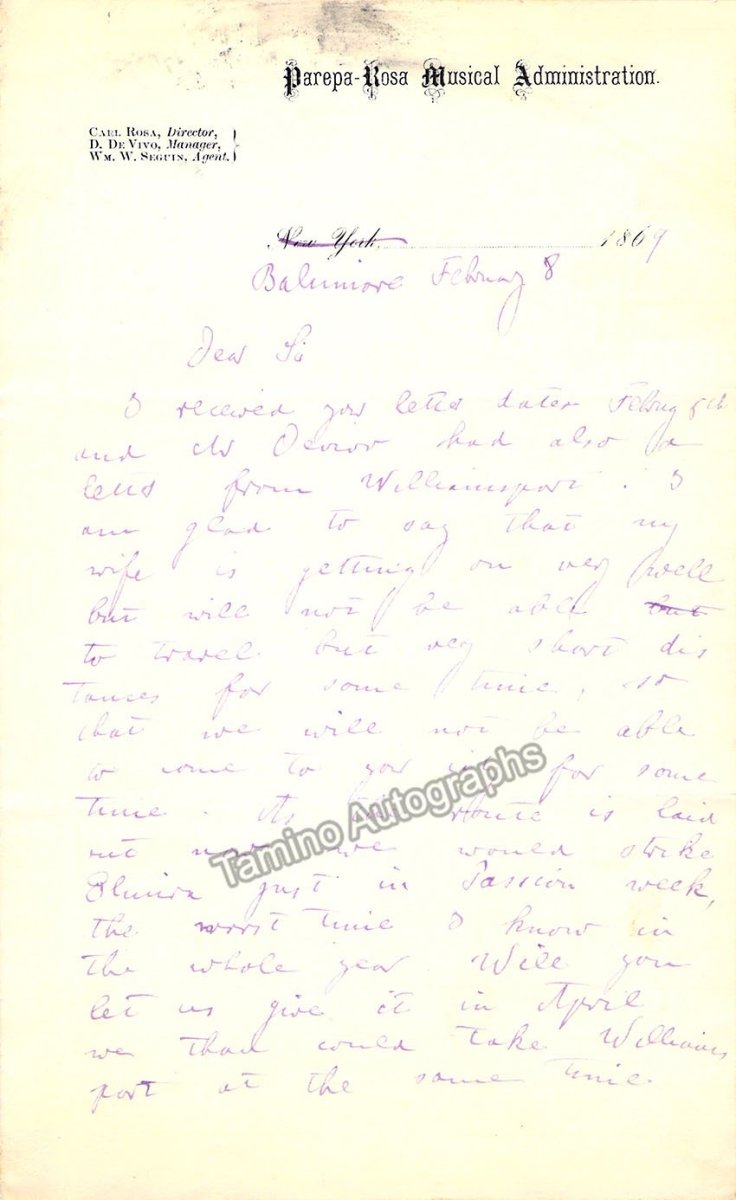 Parepa-Rosa Musical Administration.
CARL ROSA, Director,
D. DE VIVO, Manager,
WM. W. SEGUIN, Agent.
New York, 1869
Baltimore February 8
Dear Sir
I received your letter dated February 5th
and Mr Devivo had also a
letter from Williamsport. I
am glad to say that my
wife is getting on very well
but will not be able but
to travel but very short dis
tances for some time, so
that we will not be able
to come to you for some
time. As route is laid
out now we would strike
Elmira just in Passion week,
the worst time I know in
the whole year. Will you
let us give it in April
we than could take Williams
port at the same time.
Tamino Autographs